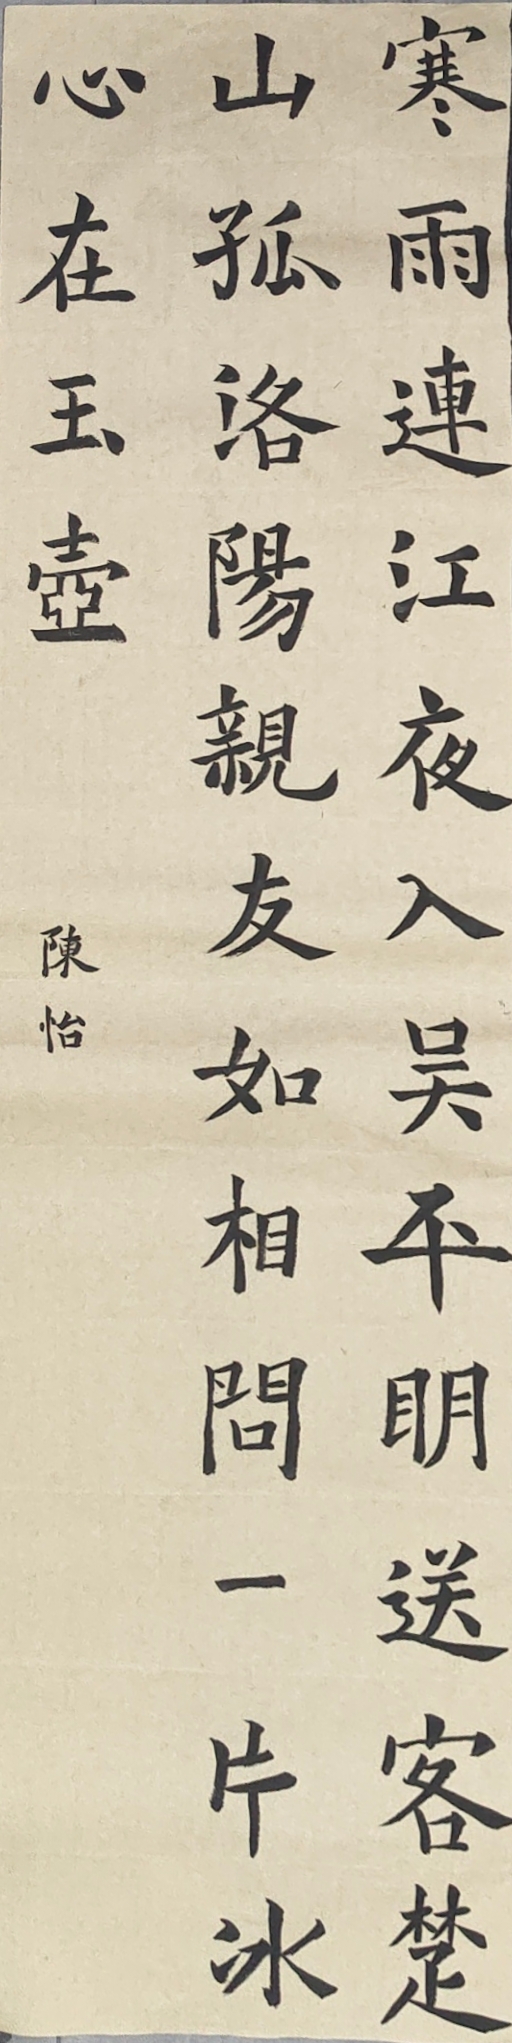 寒雨連江夜入吴平明送客楚
山孤洛陽親友如相問一片冰
心在玉壺
陳怡